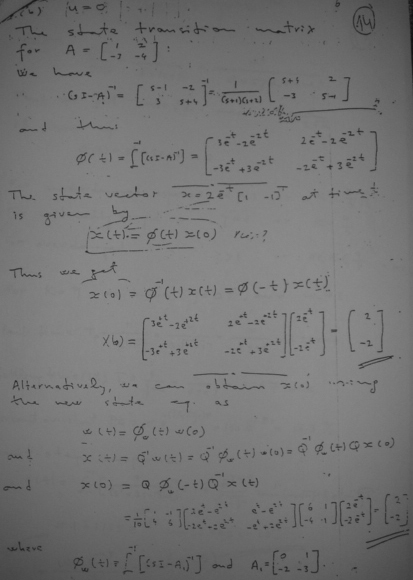 (b) u = 0
14
The state transition matrix
for A = [1 2; -3 -4] :
We have
(sI-A)^-1 = [s-1 -2; 3 s+4]^-1 = 1/((s+1)(s+2)) [s+4 2; -3 s-1]
and thus
φ(t) = L^-1 [(sI-A)^-1] = [3e^-t - 2e^-2t 2e^-t - 2e^-2t; -3e^-t + 3e^-2t -2e^-t + 3e^-2t]
The state vector x = 2e^-t [1 -1]^T at time t
is given by
x(t) = φ(t) x(0)
Thus we get
x(0) = φ^-1(t) x(t) = φ(-t) x(t)
x(0) = [3e^t - 2e^2t 2e^t - 2e^2t; -3e^t + 3e^2t -2e^t + 3e^2t] [2e^-t; -2e^-t] = [2; -2]
Alternatively, we can obtain x(0) using
the new state eq. as
w(t) = φw(t) w(0)
and x(t) = Q^-1 w(t) = Q^-1 φw(t) w(0) = Q^-1 φw(t) Q x(0)
and x(0) = Q φw(-t) Q^-1 x(t)
= [2; -2]
where
φw(t) = L^-1 [(sI-A1)^-1] and A1 = [0 1; -2 -3].